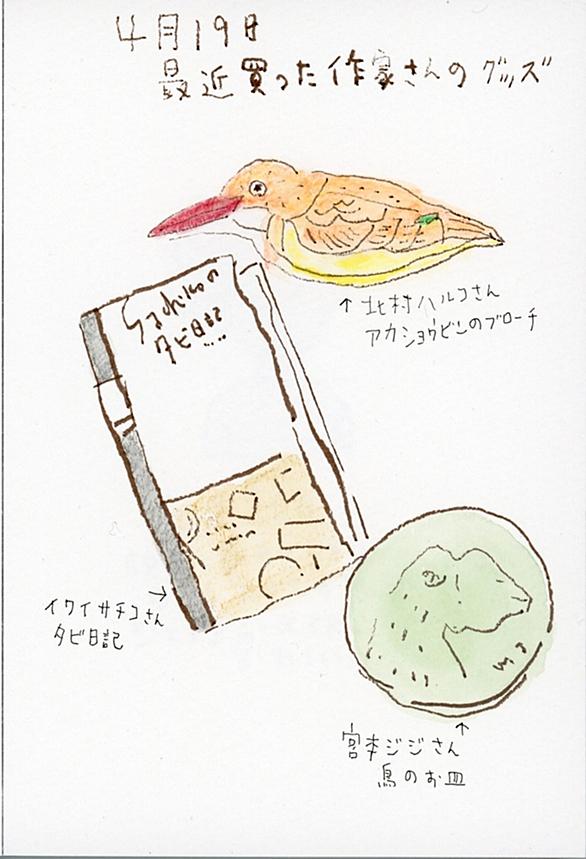 4月19日
最近買った作家さんのグッズ
↑北村ハルコさん
アカショウビンのブローチ
Sachikoの
タビ日記
イワイサチコさん→
タビ日記
↑
宮本ジジさん
鳥のお皿